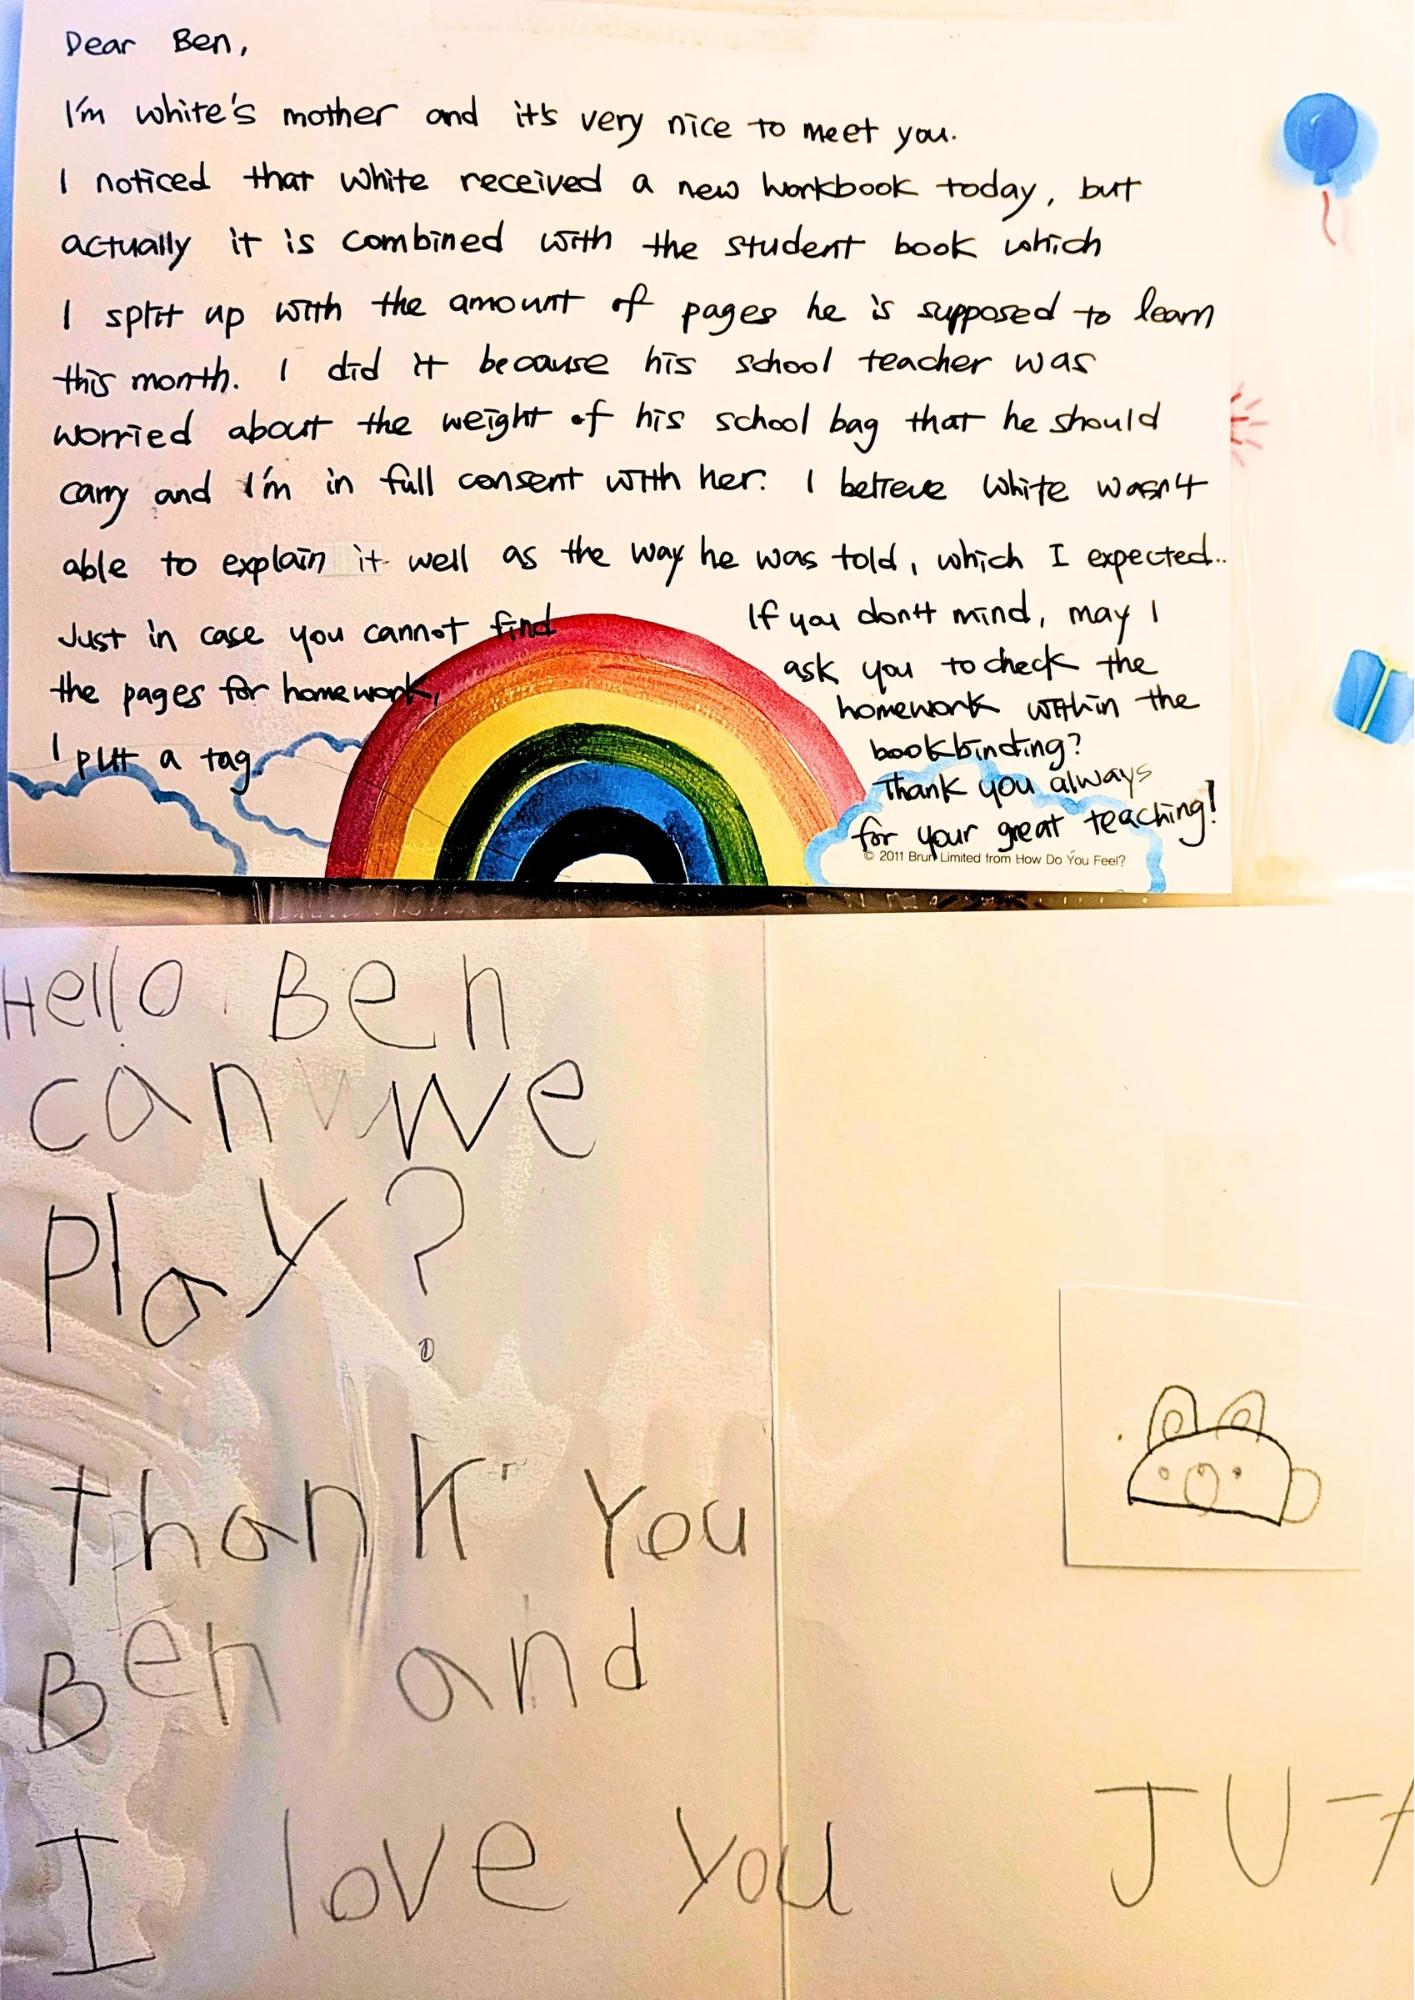 Dear Ben,
I'm white's mother and it's very nice to meet you.
I noticed that white received a new workbook today, but
actually it is combined with the student book which
I split up with the amount of pages he is supposed to learn
this month. I did it because his school teacher was
worried about the weight of his school bag that he should
carry and I'm in full consent with her. I believe white wasn't
able to explain it well as the way he was told, which I expected..
Just in case you cannot find
the pages for homework,
I put a tag.
If you don't mind, may I
ask you to check the
homework within the
bookbinding?
Thank you always
for your great teaching!
© 2011 Brun Limited from How Do You Feel?
Hello Ben
can we
play?
Thank you
Ben and
I love you
JU-A